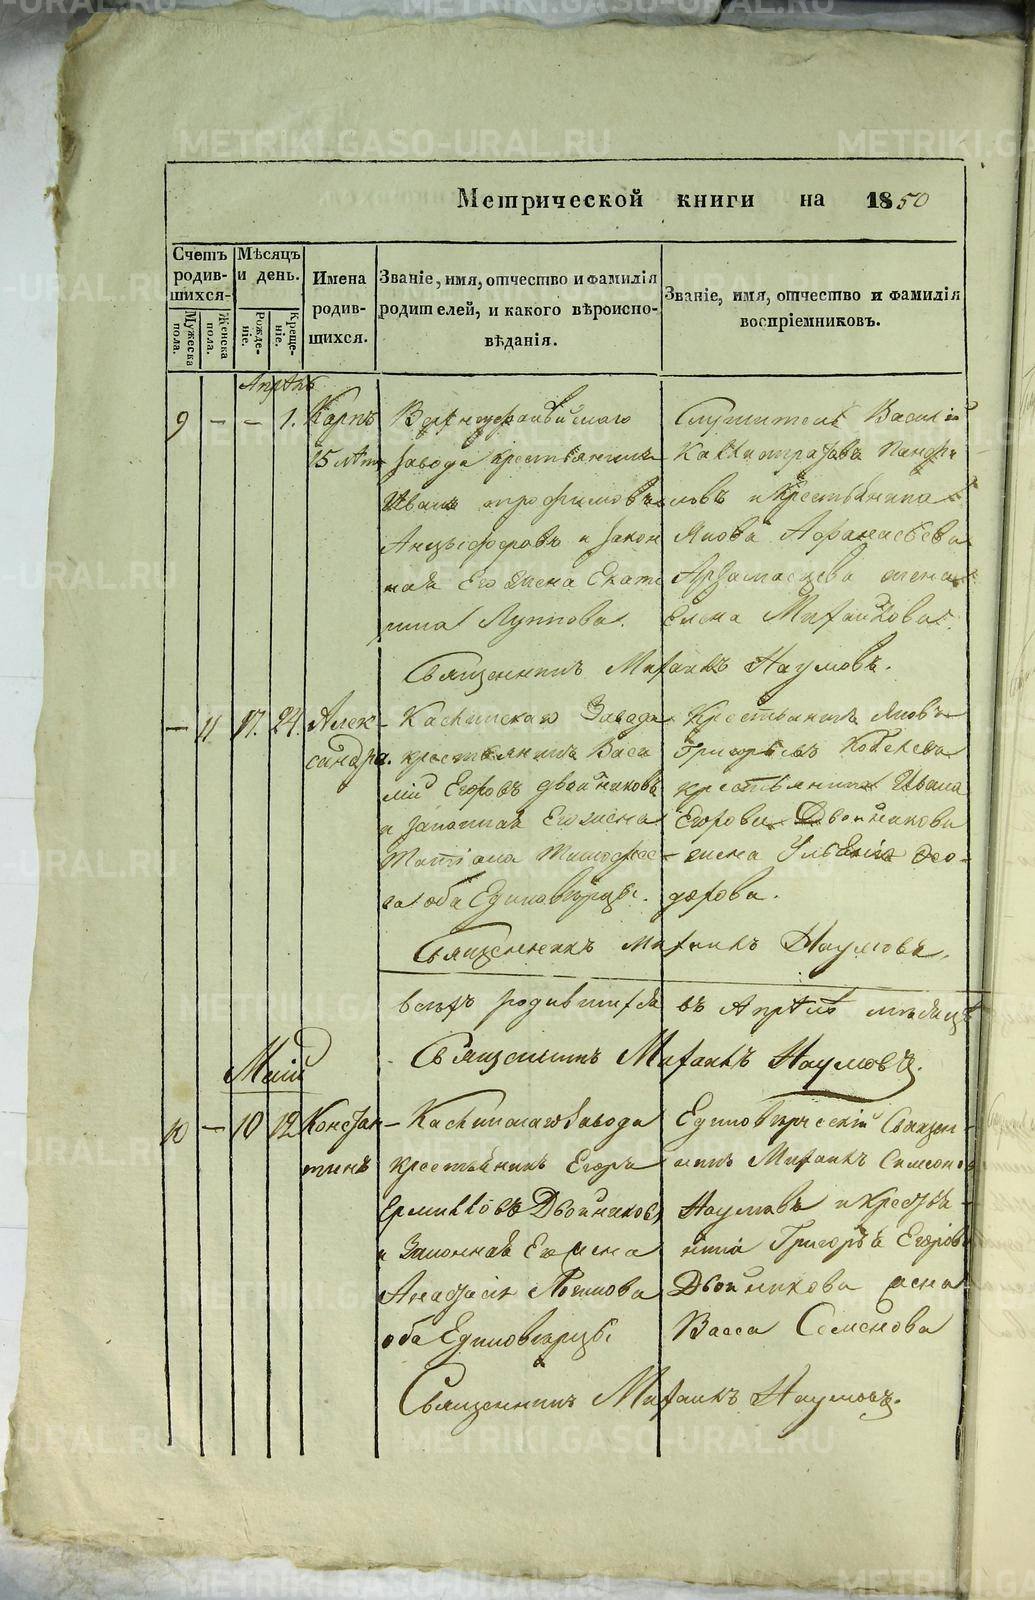 METRIKI.GASO-URAL.RU
Метрической книги на 1850
Счетъ родившихся.
Мужеска пола.
Женска пола.
Мѣсяцъ и день.
Рожденіе.
Крещеніе.
Имена родившихся.
Званіе, имя, отчество и фамилія родителей, и какого вѣроисповѣданія.
Званіе, имя, отчество и фамилія воспріемниковъ.
Апрѣль
9 - - 1. Карпъ
15 лѣтъ
завода крестьянинъ
Иванъ Трофимовъ
и закон
ная Его жена Екате
рина
Служитель Василій
Панфи
ловъ и крестьянина
Якова Афанасьева
жена
Елена Михайлова.
Священникъ Михаилъ Наумовъ.
- 11 17. 24. Алек-
сандра.
Каслинскаго Завода
крестьянинъ Васи
лій Егоровъ Двойниковъ
и законная Его жена
Татіана Тимофее-
ва оба Единовѣрцы.
Крестьянинъ Яковъ
Григорьевъ
крестьянина Ивана
Егорова Двойникова
жена Ульянія Ѳео-
дорова.
Священникъ Михаилъ Наумовъ.
всѣхъ родившихся въ Апрѣлѣ мѣсяцѣ
Священникъ Михаилъ Наумовъ.
Маій
10 - 10 12 Констан-
тинъ
Каслинскаго Завода
крестьянинъ Егоръ
Ермиловъ Двойниковъ
и Законная Его жена
Анафасія
оба Единовѣрцы
Единовѣрческій Священ-
никъ Михаилъ Симеоновъ
Наумовъ и крестья-
нина Григорья Егорова
Двойникова жена
Васса Семенова
Священникъ Михаилъ Наумовъ.